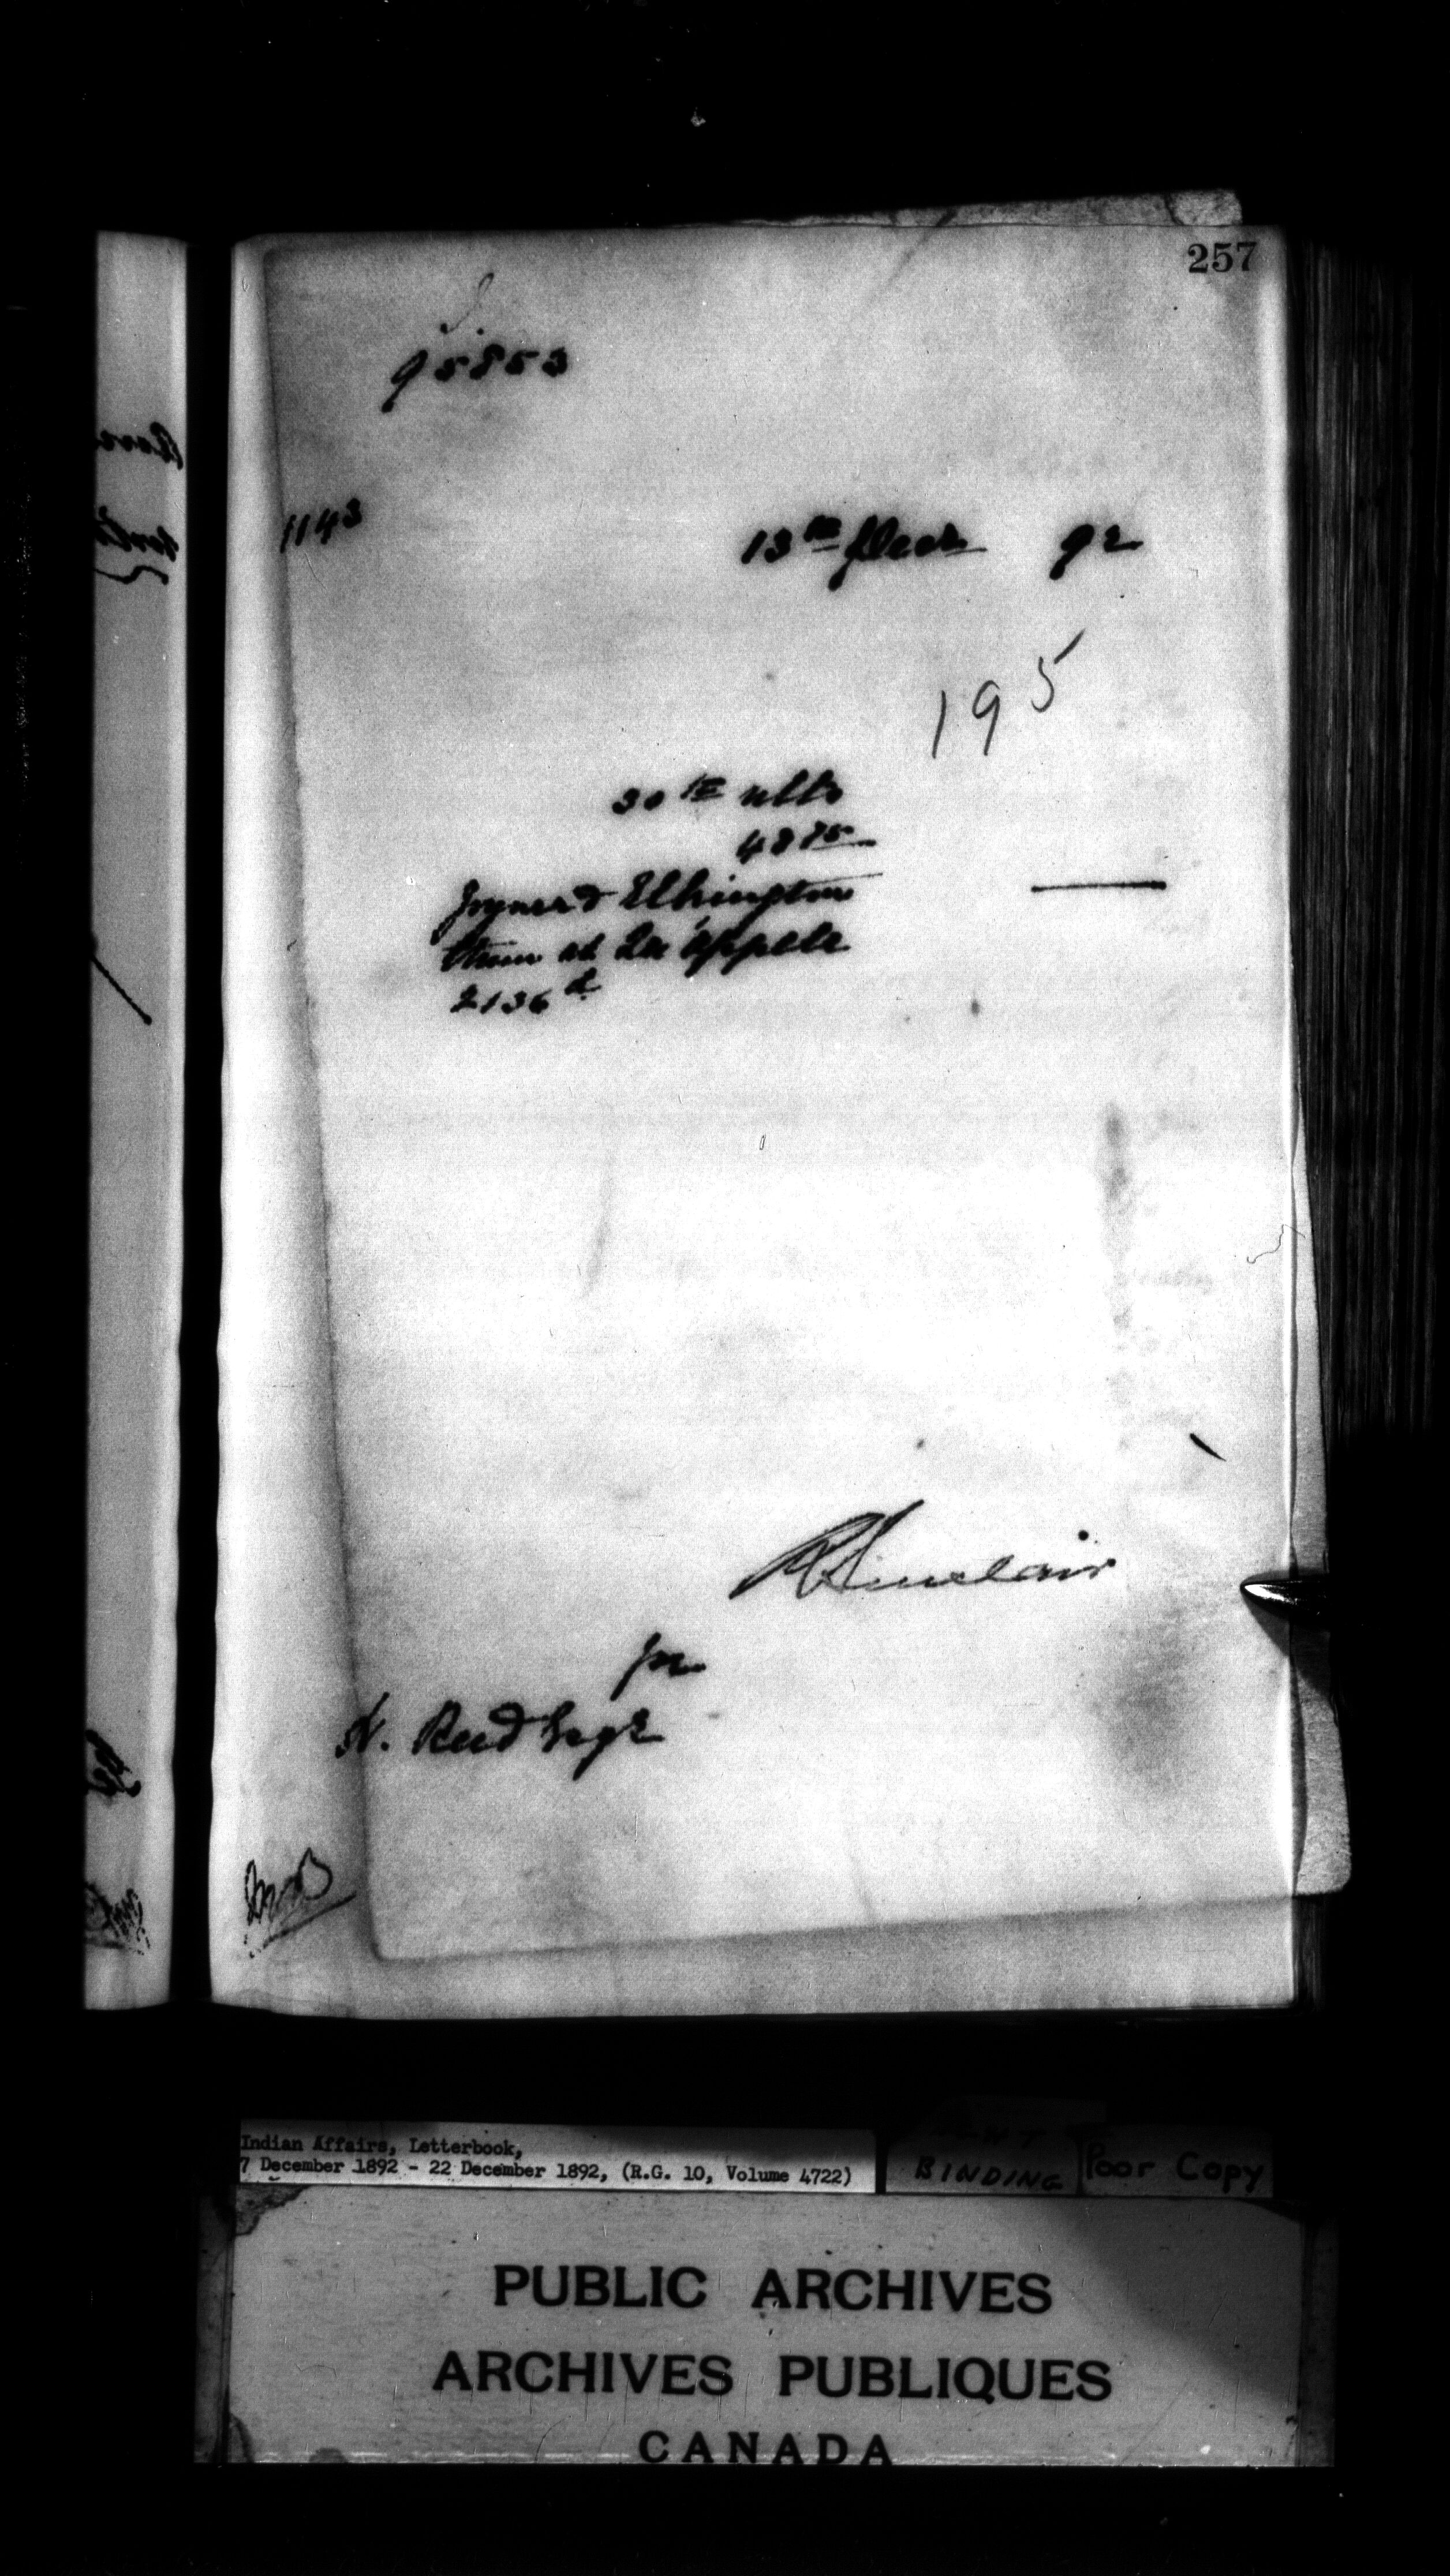 257
95853
1143
13th Decr 92
195
30th ulto
4875
Joyner & Elkington
them at Qu'Appelle
2136
R Sinclair
H. Reed Esqr
Indian Affairs, Letterbook,
7 December 1892 - 22 December 1892, (R.G. 10, Volume 4722)
BINDING
Poor Copy
PUBLIC ARCHIVES
ARCHIVES PUBLIQUES
CANADA